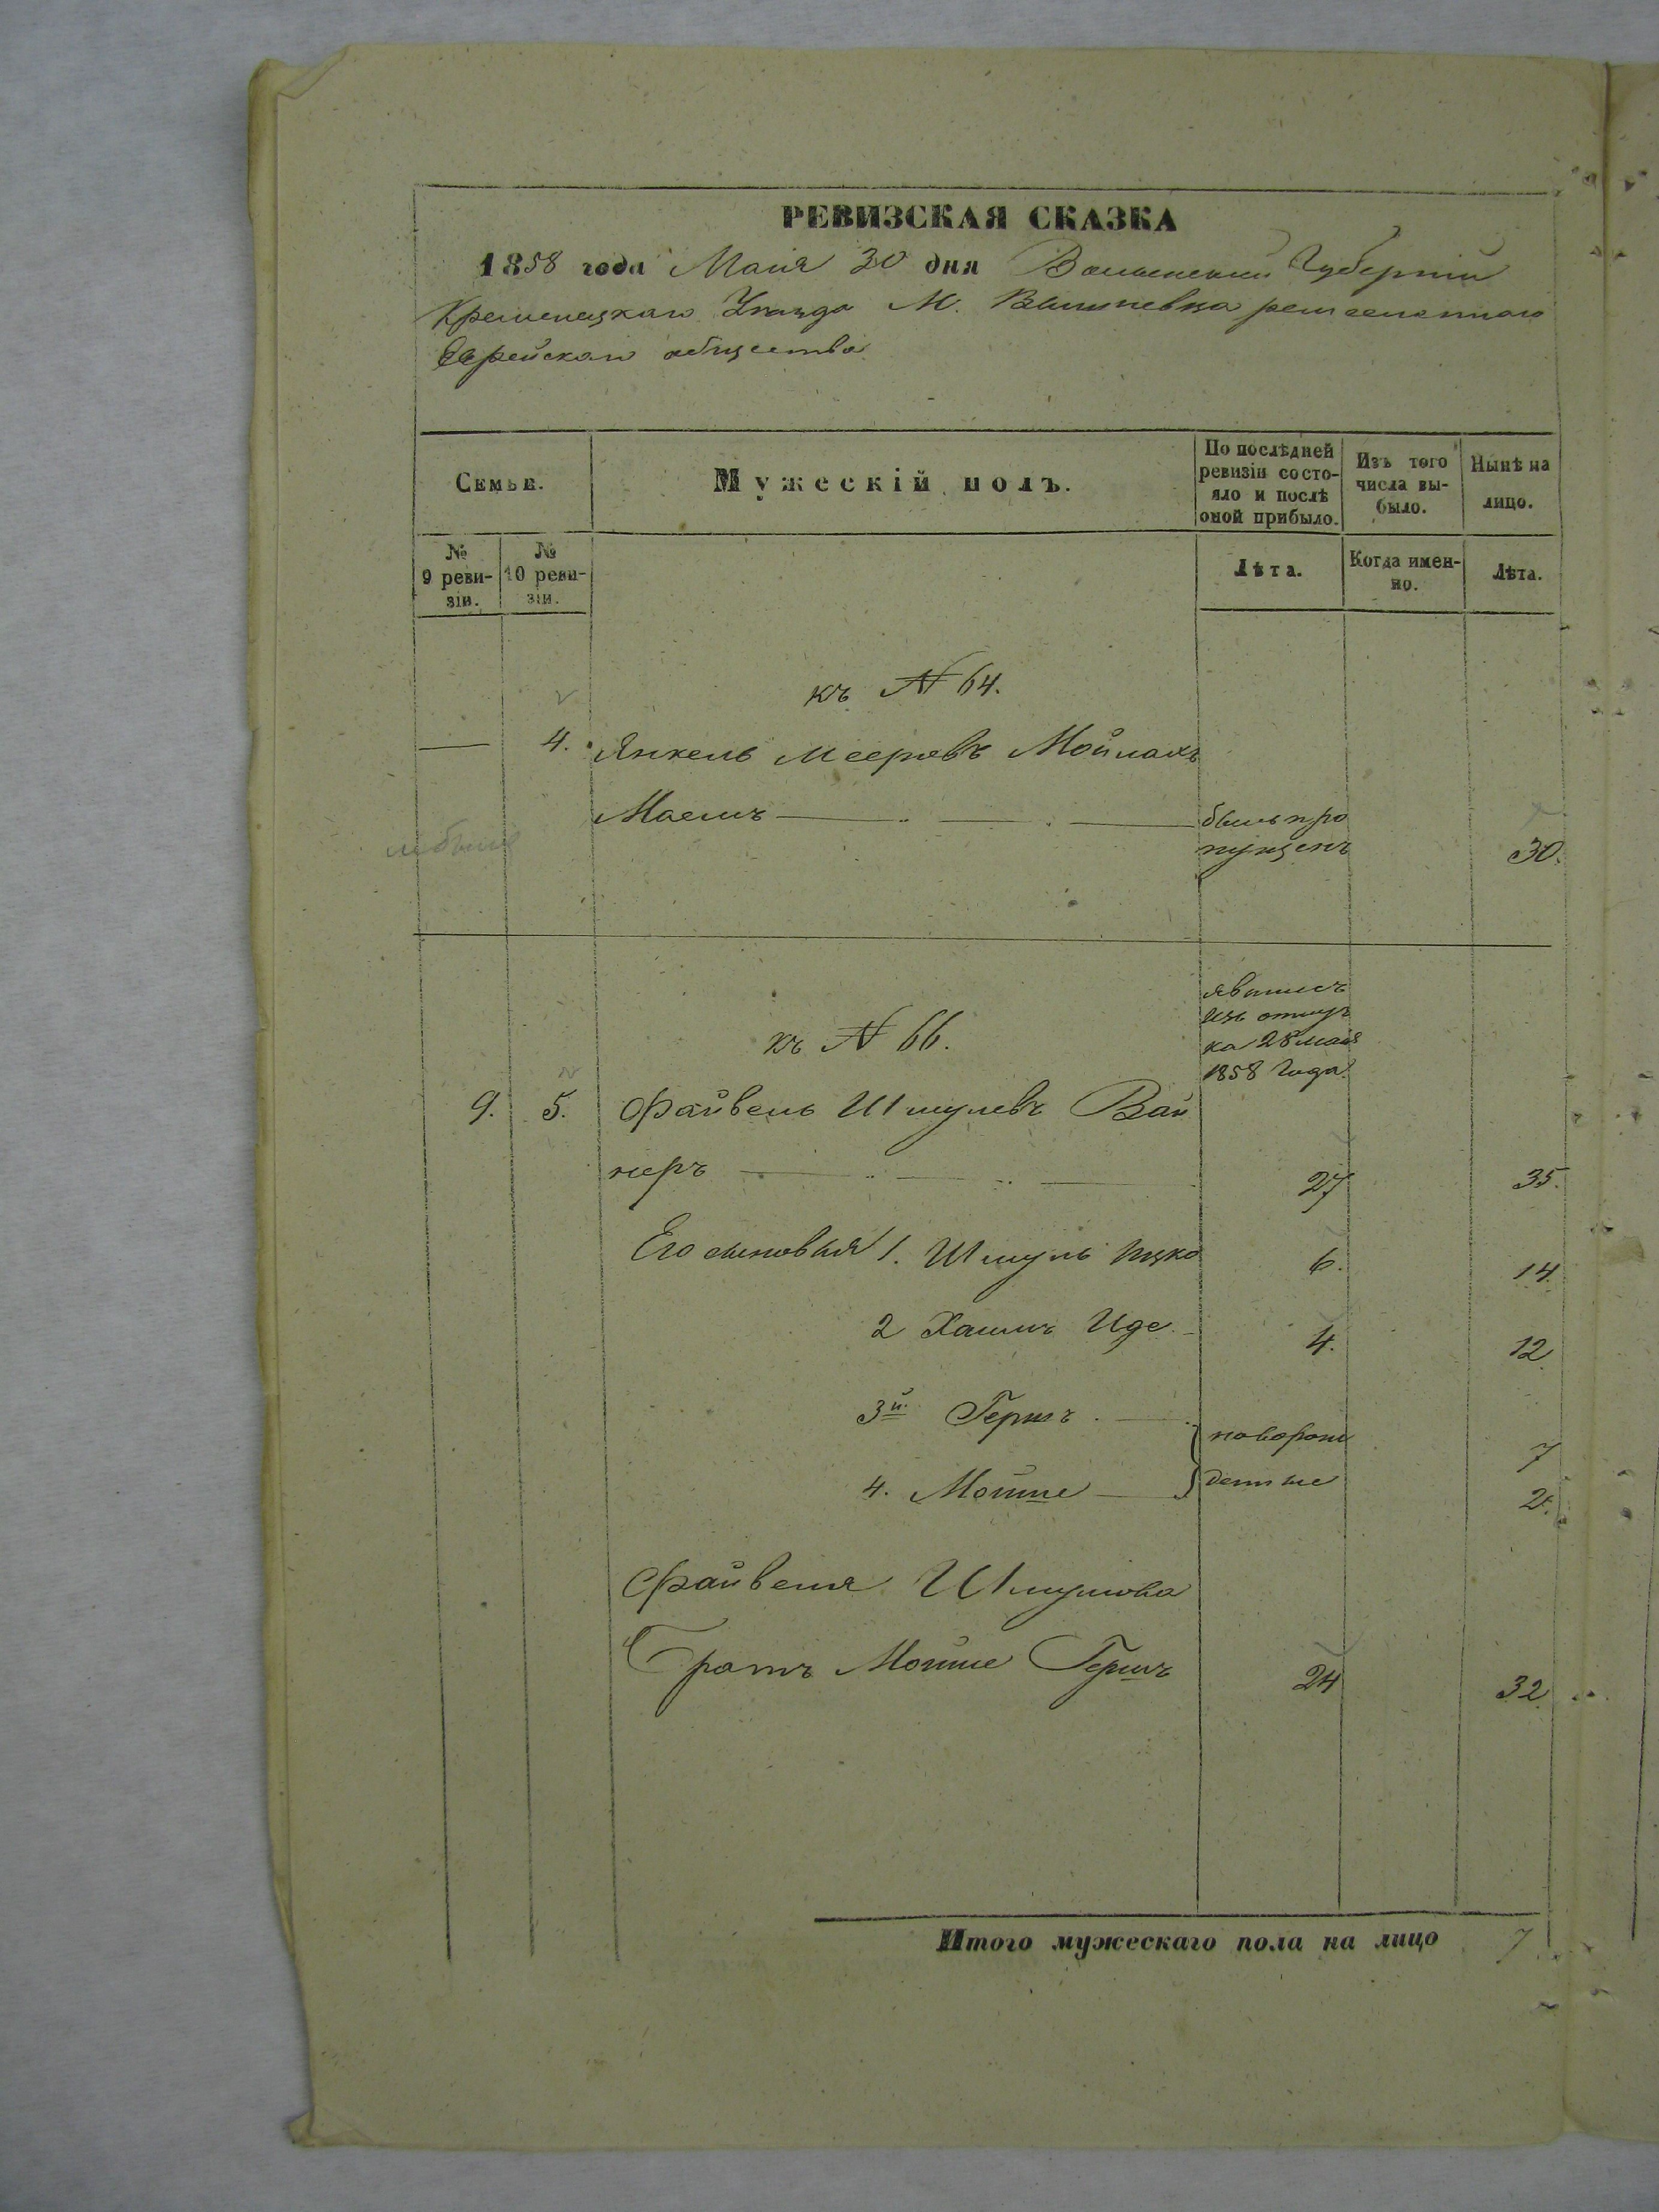 РЕВИЗСКАЯ СКАЗКА
1858 года Маия 30 дня Волынской Губерніи
Кременецкаго Уѣзда М. Вишневца
Еврейскаго общества
Семьи.
Мужескій полъ.
По послѣдней ревизіи состо-
яло и послѣ
оной прибыло.
Изъ того
числа вы-
было.
Нынѣ на
лицо.
№
9 реви-
зіи.
№
10 реви-
зіи.
Лѣта.
Когда имен-
но.
Лѣта.
къ № 64.
4. Янкель Мееровъ Мойлахъ
былъ про
пущенъ 30.
явились
изъ отпус
ка 28 мая
1858 Года.
къ № 66.
9. 5. Файвель Шмулевъ Вай
неръ 27 35.
Его сыновья 1. Шмуль Ицко 6. 14.
2 Хаимъ Иде 4. 12.
3й Гершъ новорож 7
4. Мойше денные 2.
Файвеля Шмулева
Братъ Мойше Гершъ 24 32
Итого мужескаго пола на лицо 7